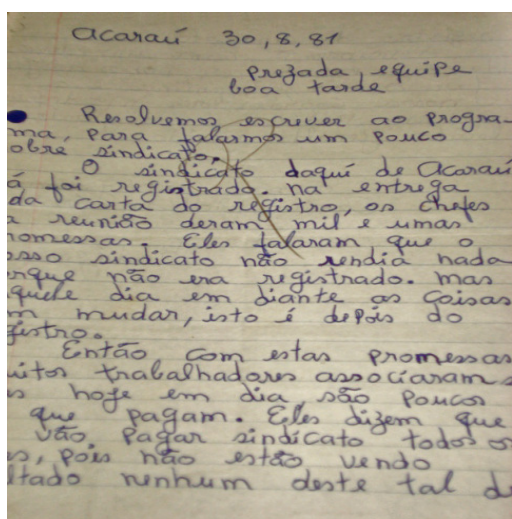 Acaraú 30,8,81
prezada equipe
boa tarde
Resolvemos escrever ao progra-
ma, para falarmos um pouco
obre sindicato.
O sindicato daquí de Acaraú
á foi registrado. na entrega
da carta do registro, os chefes
a reunião deram mil e umas
romessas. Eles falaram que o
osso sindicato não rendia nada
orque não era registrado. mas
quele dia em diante as coisas
m mudar, isto é depois do
gistro.
Então com estas promessas
uitos trabalhadores associaram s
s hoje em dia são poucos
que pagam. Eles dizem que
vão pagar sindicato todos os
s, pois não estão vendo
ltado nenhum deste tal de